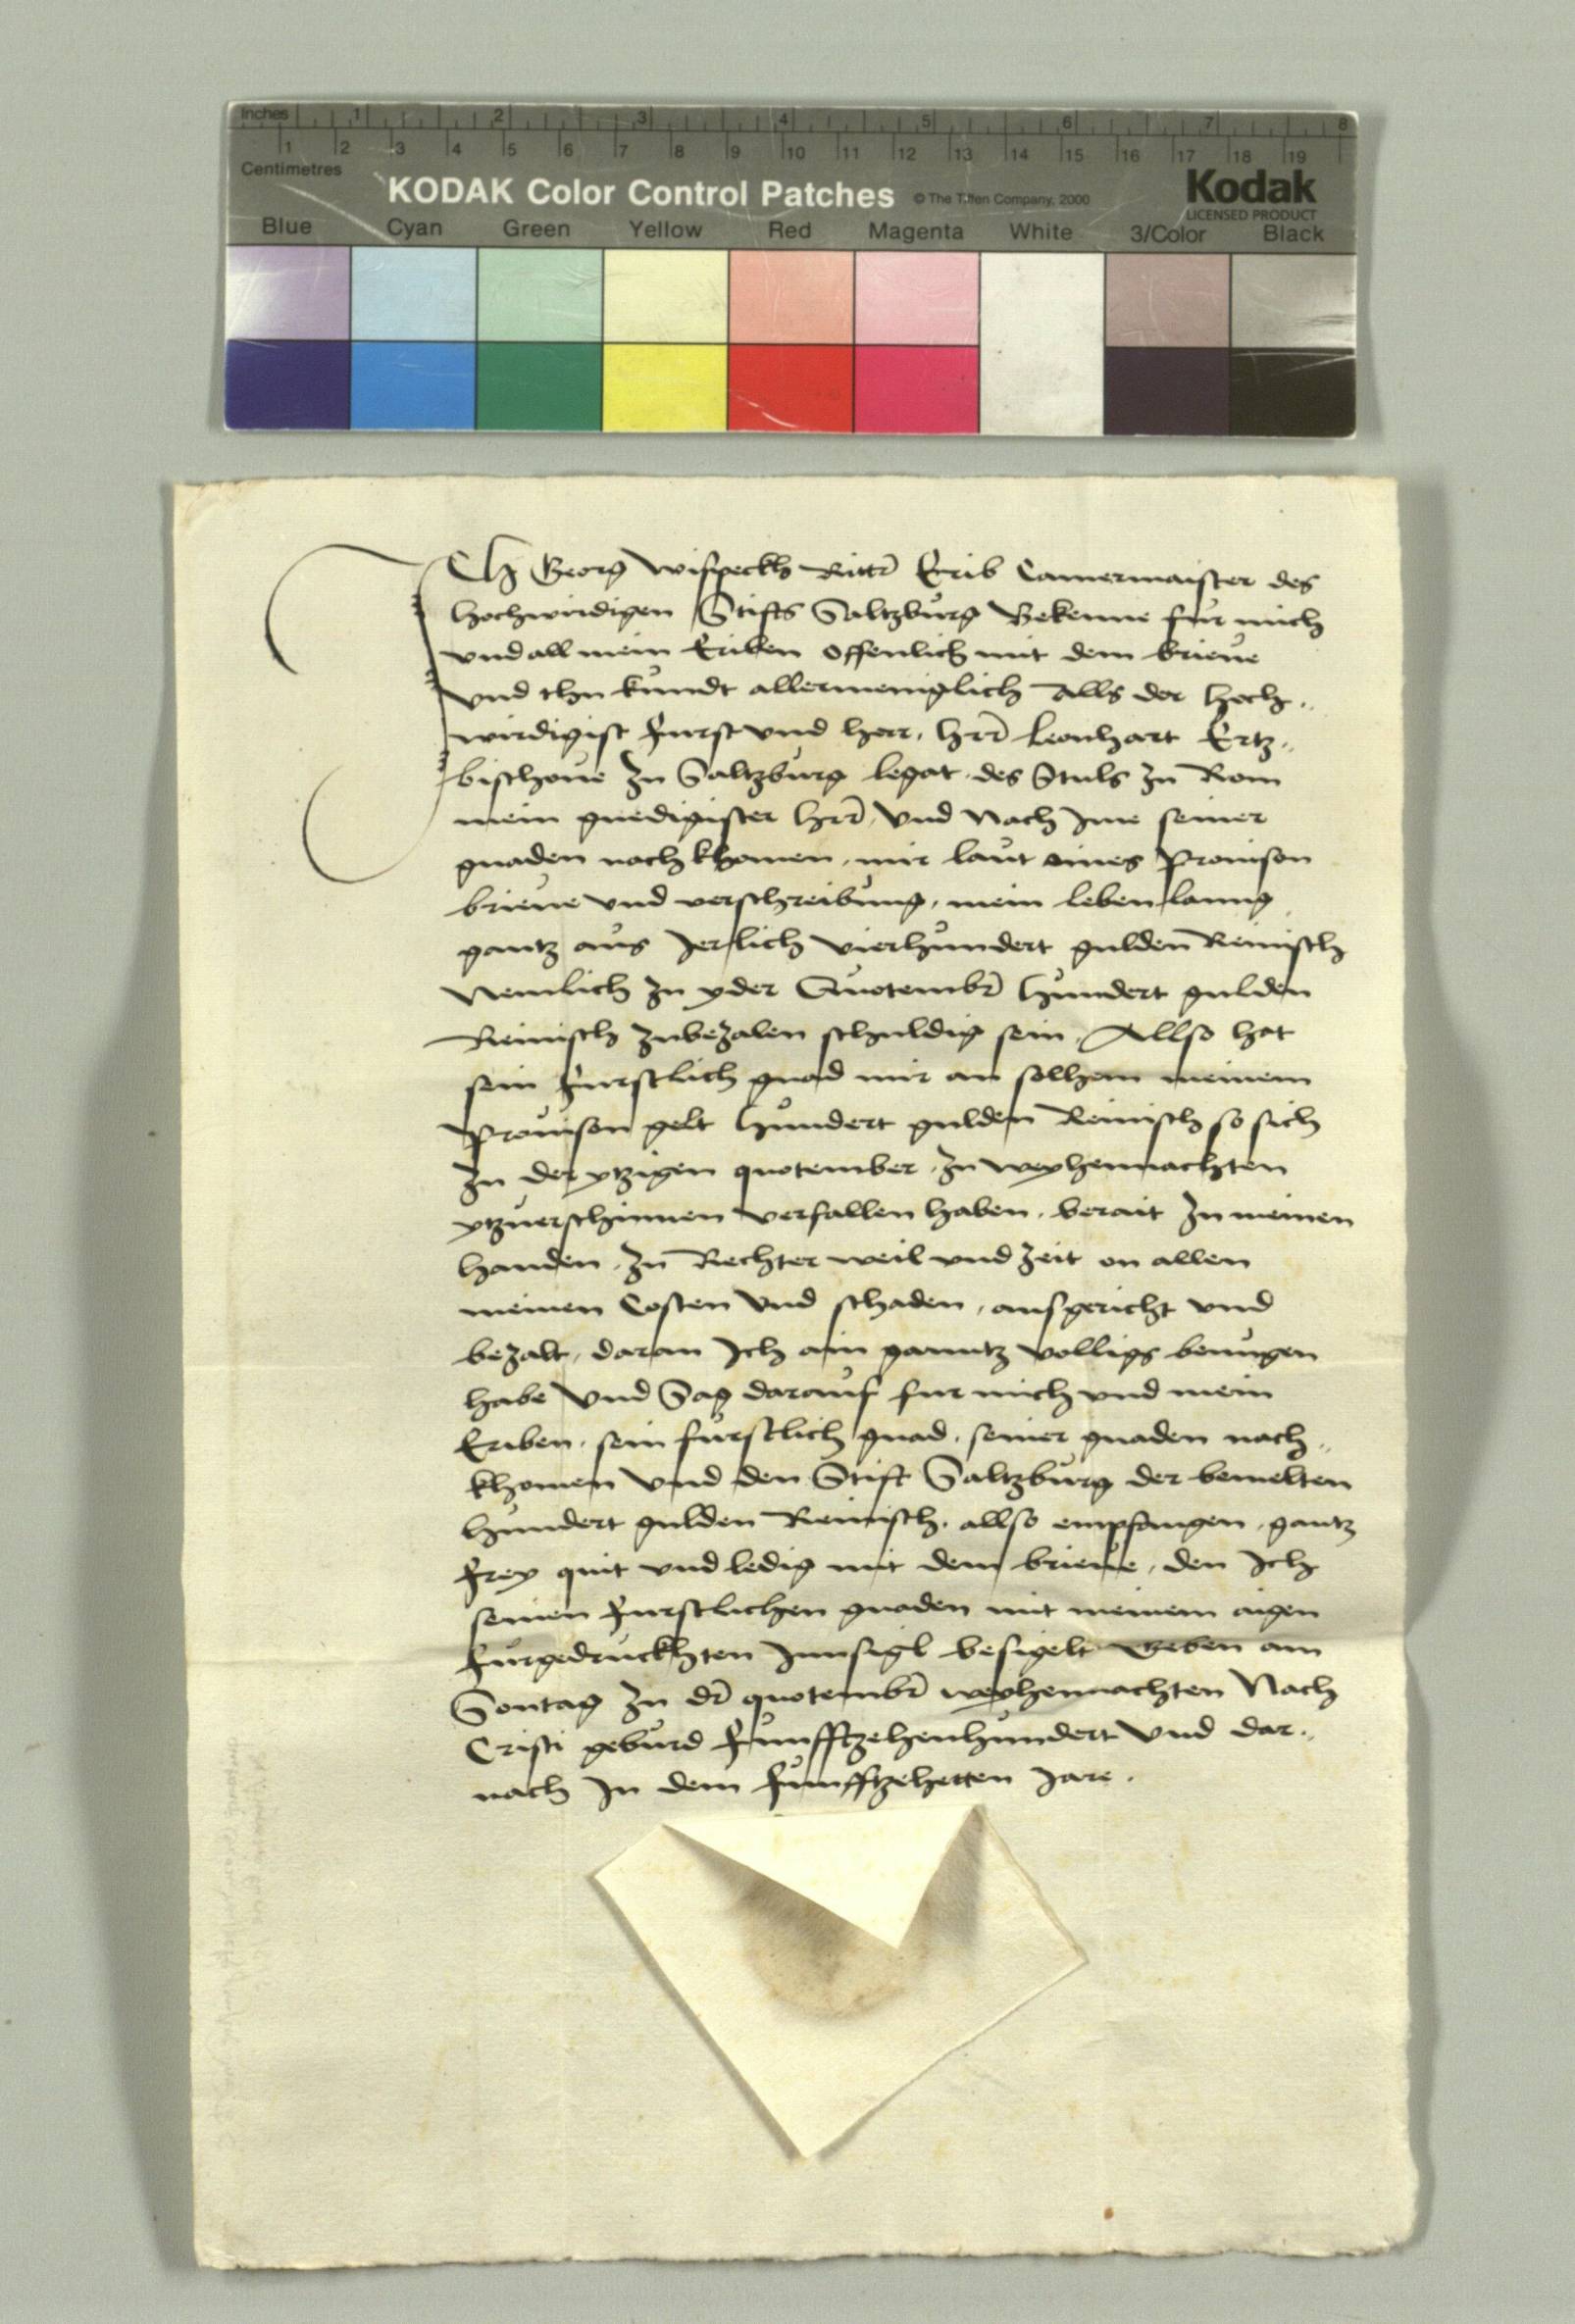 Inches 1 2 3 4 5 6 7 8
1 2 3 4 5 6 7 8 9 10 11 12 13 14 15 16 17 18 19
Centimetres
KODAK Color Control Patches © The Tiffen Company, 2000 Kodak
LICENSED PRODUCT
Blue Cyan Green Yellow Red Magenta White 3/Color Black
ICh Georg Wispeckh Rittr Erib Camermaister des
hochwirdigen Stiffts Saltzburg Bekenne fur mich
vnd all mein Eriben offenlich mit dem brieue
vnd thu kundt allermeniglich Alls der hoch„
wirdigist furst vnd herr, hrr Leonhart Ertz„
bischoue zu Saltzburg legat des Stuls zu Rom
mein gnedigister hrr, Vnd Nach Ime seiner
gnaden nachkhomen, mir laut eines Prouison
brieue vnd verschreibung, mein leben lanng
gantz aus Jerlich vierhundert gulden Reinisch
Nemlich zu yder Quotembr hundert gulden
Reinisch zubezalen schuldig sein, Allso hat
sein furstlich gnad mir an solhem meinem
Prouison gelt hundert gulden Reinisch so sich
zu der ytzigen quotember, zu weyhennachten
ytzuerschinnen verfallen haben, berait zu meinen
handen, zu Rechter weil vnd zeit on allen
meinen Costen Vnd schaden, ausgericht vnd
bezalt, daran Ich ain ganntz volligs benugen
habe Vnd Sag darauf fur mich vnd mein
Eriben, sein furstlich gnad, seiner gnaden nach„
khomen Vnd den Stift Saltzburg der bemelten
hundert gulden Reinisch, allso empfangen, gantz
frey quit vnd ledig mit dem brieue, den Ich
seinen furstlichen gnaden mit meinem aigen
furgedruckhten Innsigl besigelt Geben am
Sontag zu dr quotembr weyhennachten Nach
Cristi geburd funfftzehenhundert Vnd dar„
nach In dem funfftzehetten Jare.